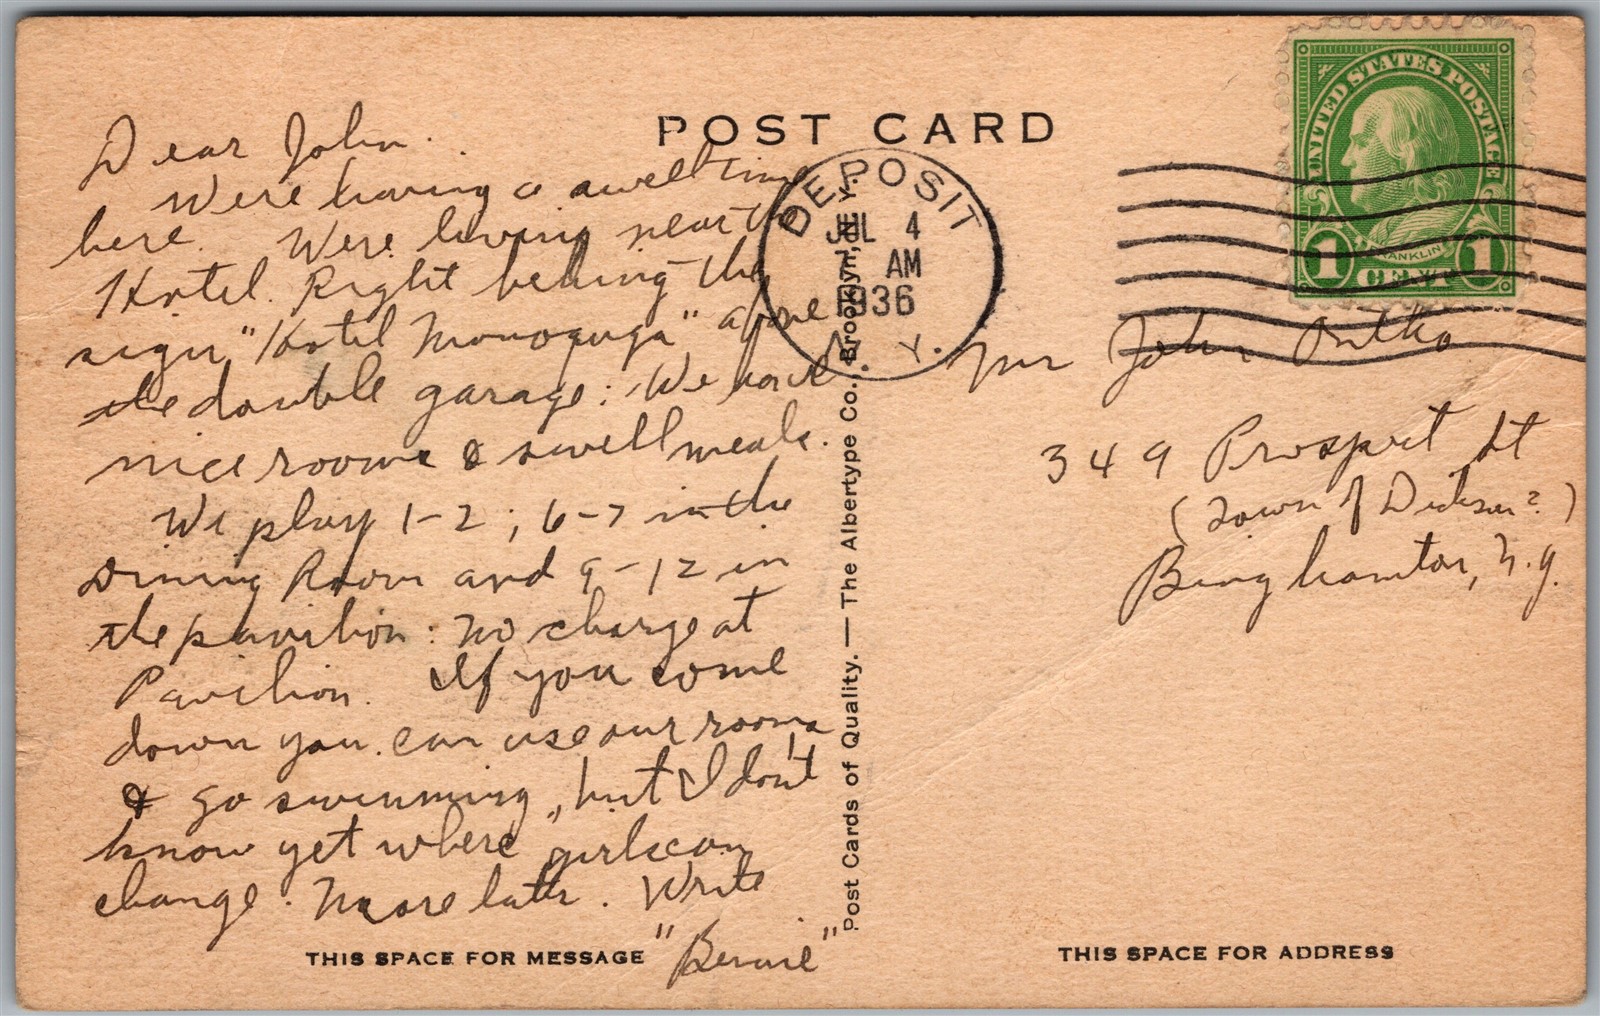 POST CARD
UNITED STATES POSTAGE
FRANKLIN
1 CENT 1
DEPOSIT
JUL 4
AM
1936
N. Y.
Dear John.
Were having a swell time
here. Were living near the
Hotel. Right behing the
sign, "Hotel " above
the double garage: We have
nice rooms & swell meals.
We play 1-2; 6-7 in the
Dining Room and 9-12 in
the pavilion: No charge at
Pavilion. If you come
down you can use our rooms
& go swimming, but I don't
know yet where girls can
change. More later. Write
"Bernie"
Mr John
349 Prospect St
(Town of Dickson?)
Binghamton, N.Y.
Post Cards of Quality. — The Albertype Co., Brooklyn, N. Y.
THIS SPACE FOR MESSAGE
THIS SPACE FOR ADDRESS